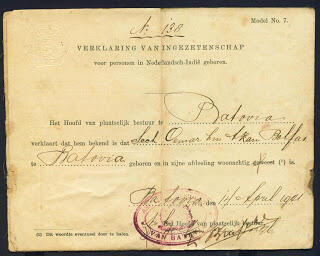 Model No. 7.
№ 138
VERKLARING VAN INGEZETENSCHAP
voor personen in Nederlandsch-Indië geboren.
Het Hoofd van plaatselijk bestuur te Batavia
verklaart dat hem bekend is dat Said Oemar bin Akan Balfas
te Batavia geboren en in zijne afdeeling woonachtig geweest (¹) is.
Batavia den 14 April 1921
Het Hoofd van plaatselijk bestuur,
VAN BATAVIA
(1) Dit woordje eventueel door te halen.